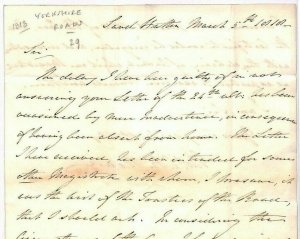 1818 YORKSHIRE
ROADS
29
Sand Hutton March 5th 1818
Sir
The delay I have been guilty of in not
answering your Letter of the 24th ult: has been
occasioned by mere inadvertence, in consequence
of having been absent from home. The Letter
I have received, has been intended for some
other Magistrate with whom, I presume, it
was the wish of the Trustees of the Road,
that I should act. In considering the